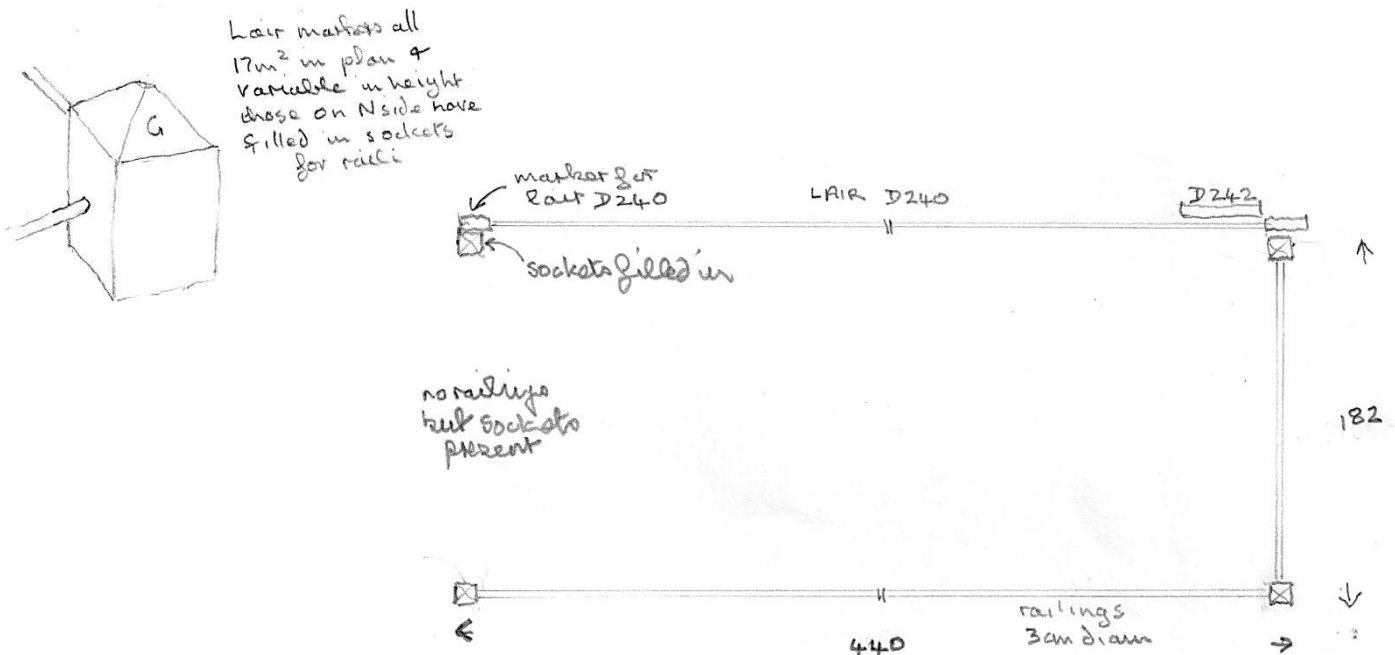 Lair markers all
17m² in plan &
variable in height
those on N side have
filled in sockets
for raili
G
marker for
lair D240
LAIR D240
D242
sockets filled in
no railings
but sockets
present
182
railings
3cm diam
440